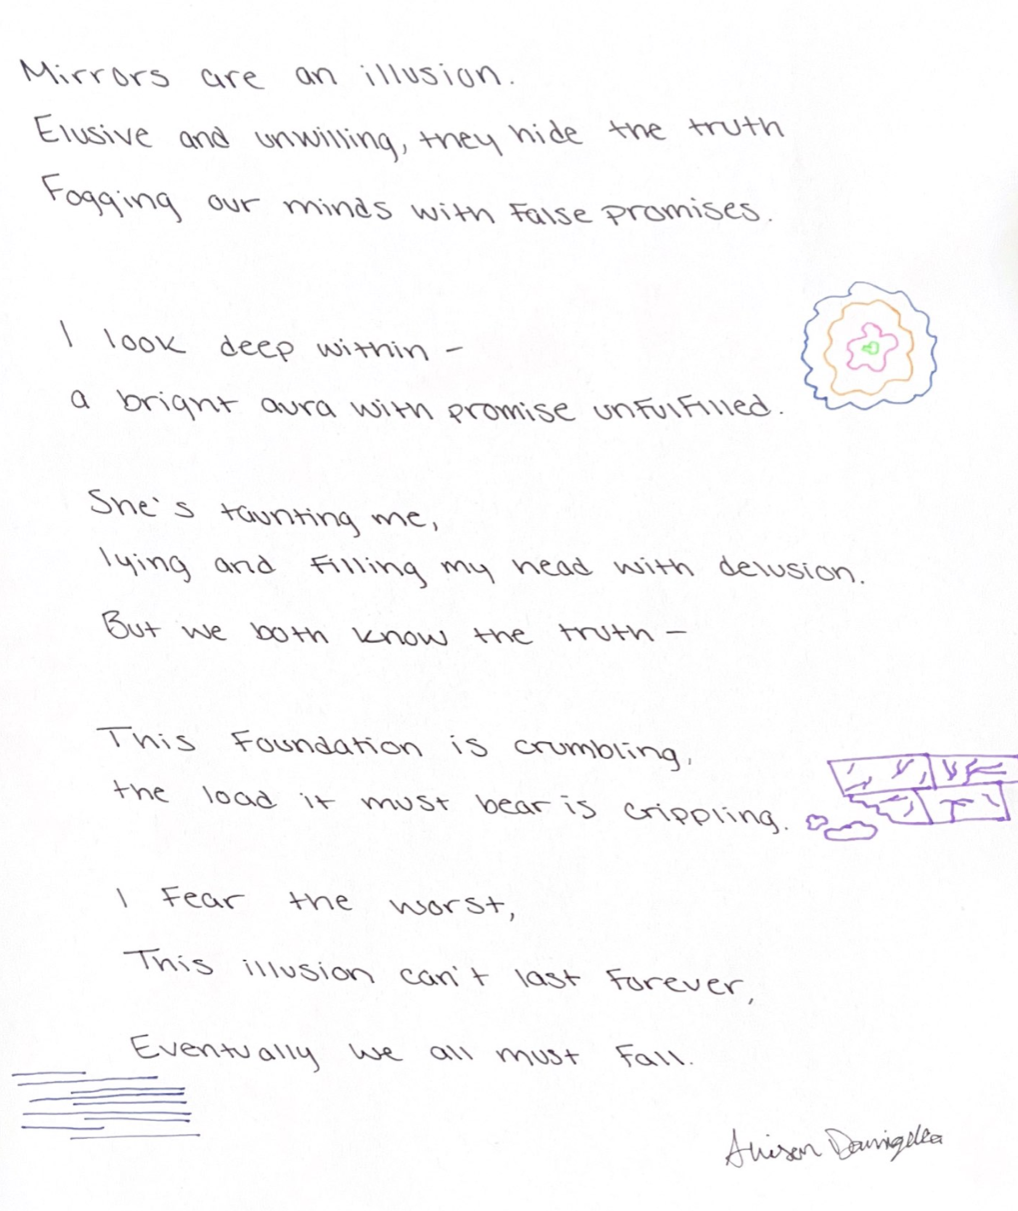 Mirrors are an illusion.
Elusive and unwilling, they hide the truth
Fogging our minds with False promises.
I look deep within –
a bright aura with promise unfulfilled.
She's taunting me,
lying and filling my head with delusion.
But we both know the truth –
This Foundation is crumbling,
the load it must bear is crippling.
I Fear the worst,
This illusion can't last Forever,
Eventually we all must Fall.
Alison